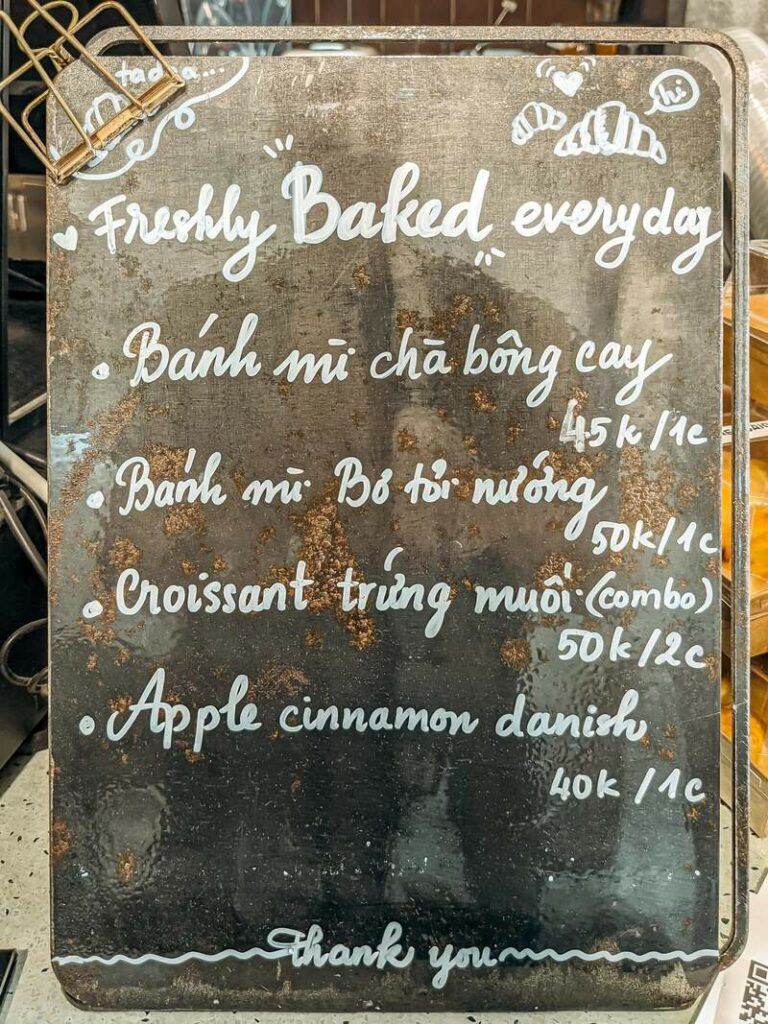 tadaa...
hi
Freshly Baked everyday
Bánh mì chà bông cay
45k/1c
Bánh mì Bơ tỏi nướng
50k/1c
Croissant trứng muối (combo)
50k/2c
Apple cinnamon danish
40k/1c
thank you